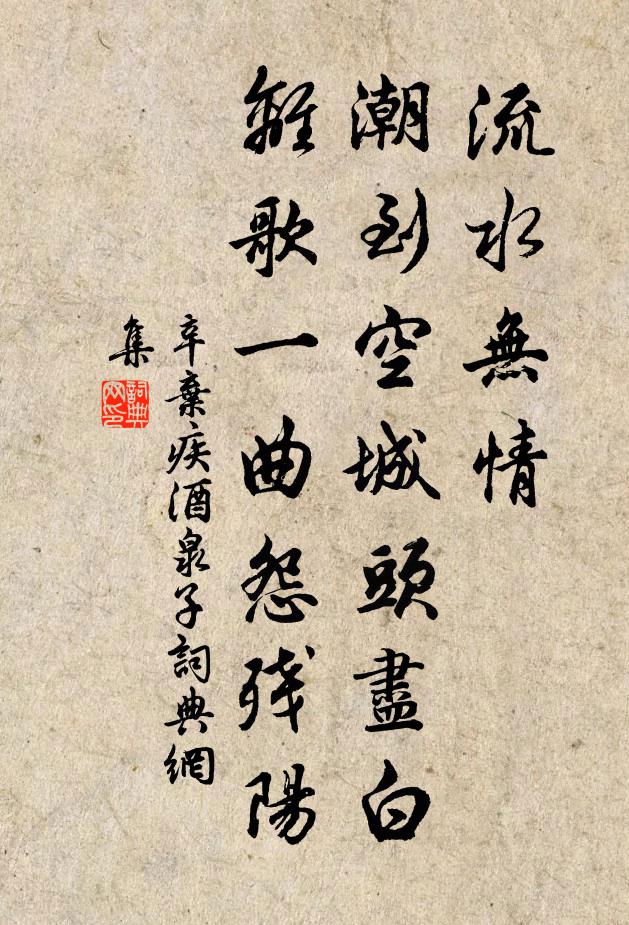 流水無情
潮到空城頭盡白
離歌一曲怨残陽
辛棄疾酒泉子詞典網
集
詞典
网印